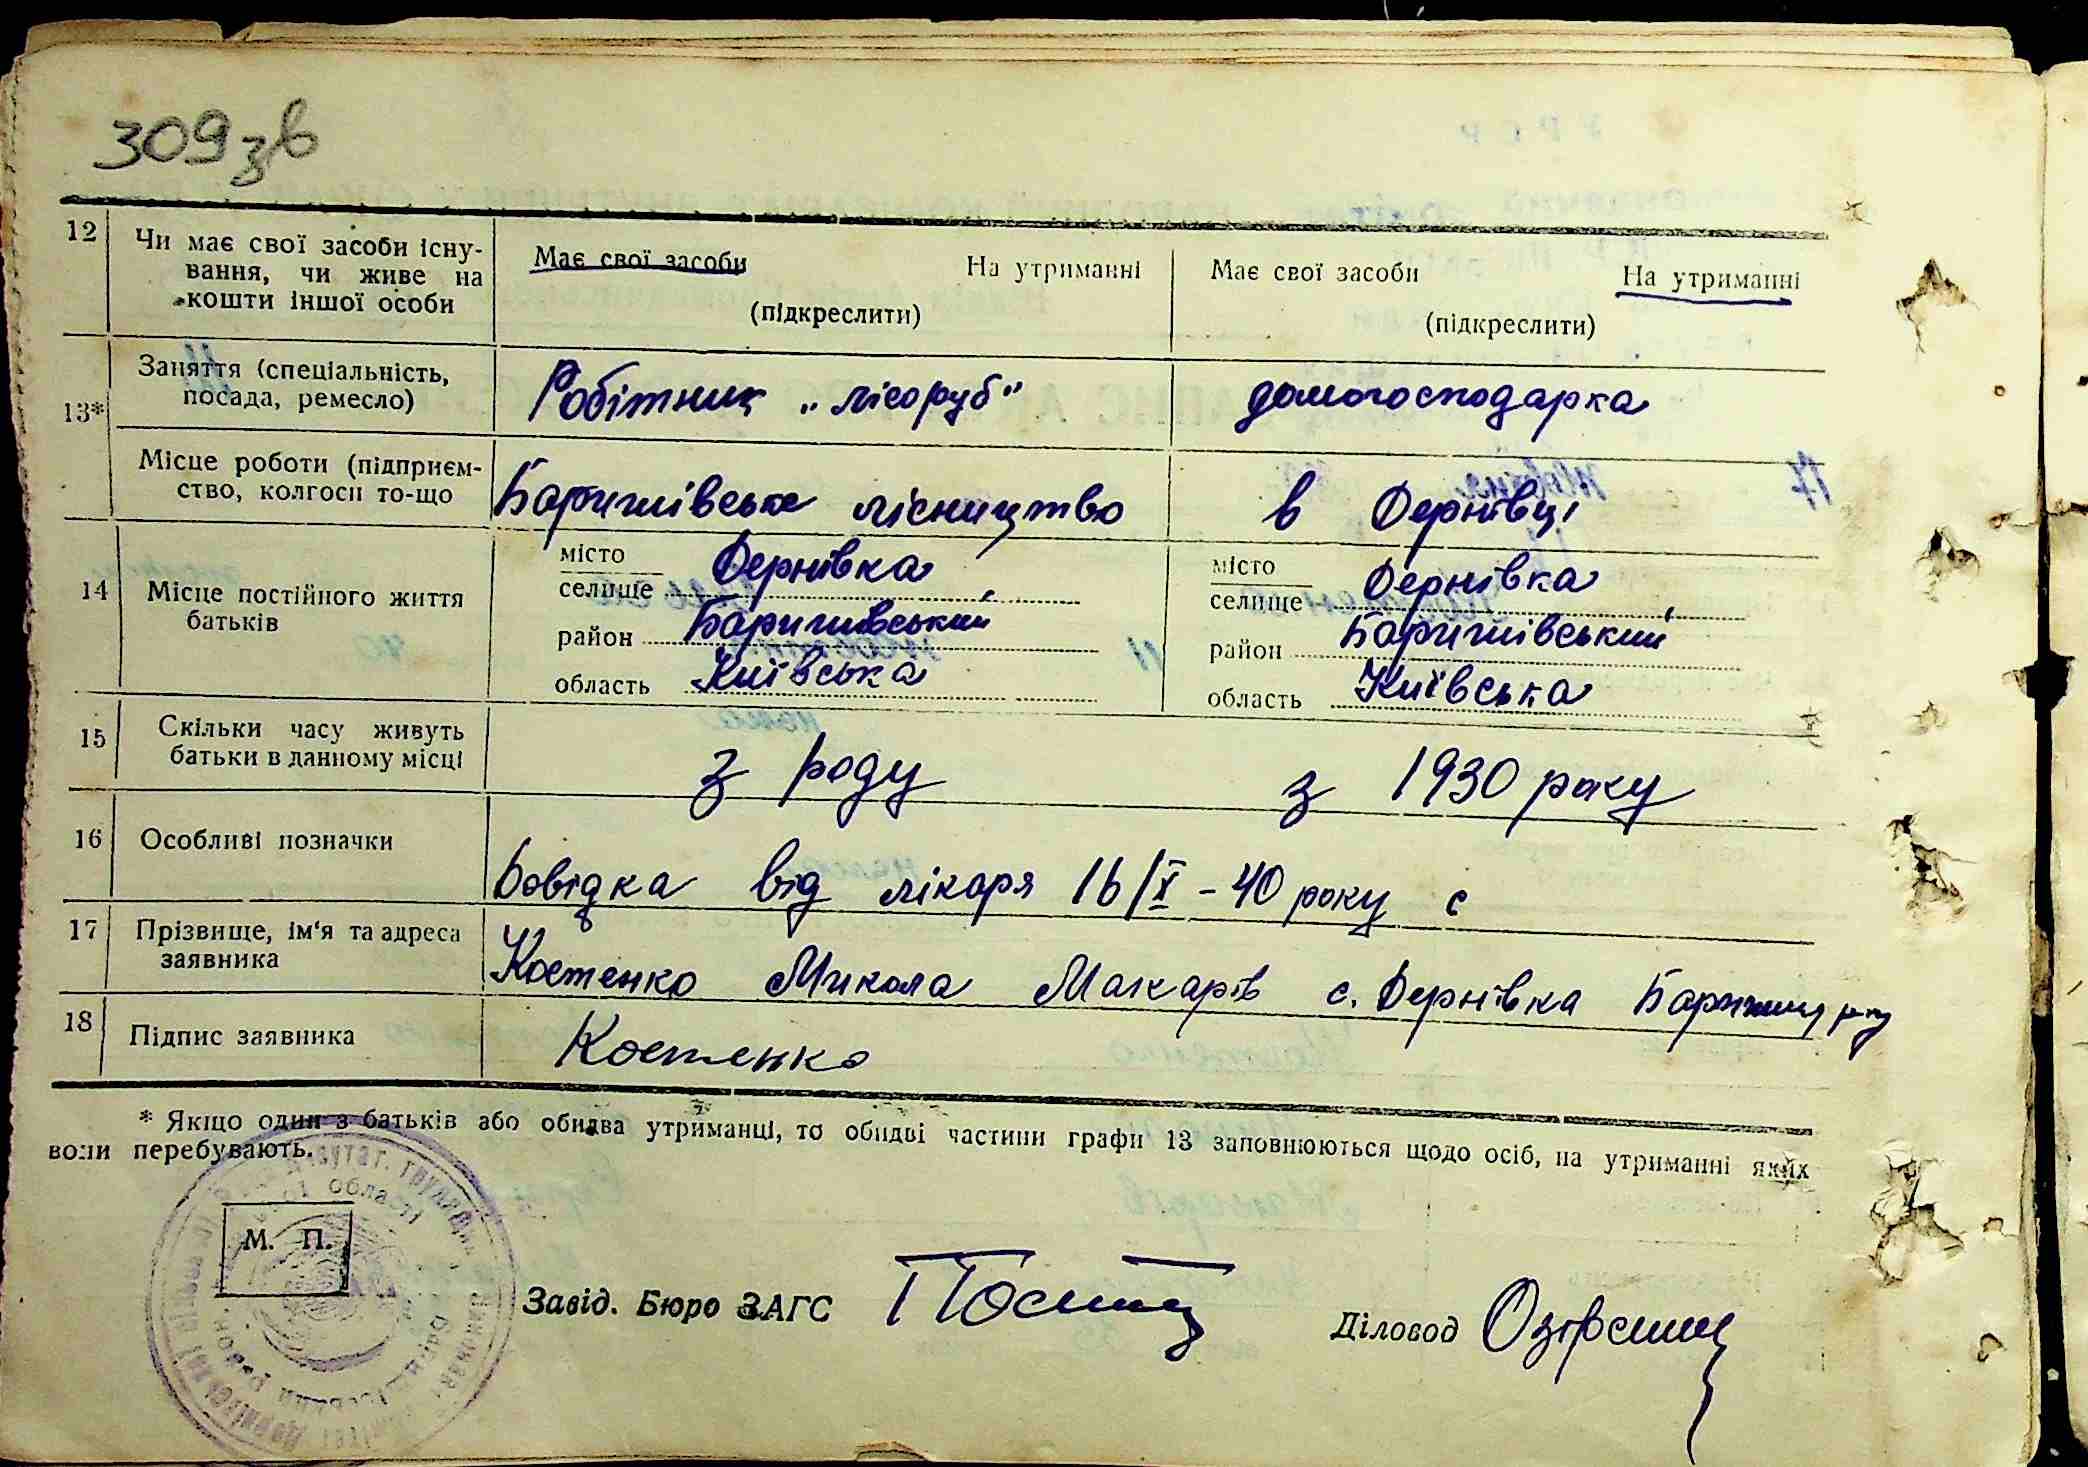 309зв
12 Чи має свої засоби існу-
вання, чи живе на
кошти іншої особи
Має свої засоби На утриманні
(підкреслити)
Має свої засоби На утриманні
(підкреслити)
13* Заняття (спеціальність,
посада, ремесло)
Робітник „лісоруб" домогосподарка
Місце роботи (підприєм-
ство, колгосп то-що
Баришівське лісництво в Дернівці
14 Місце постійного життя
батьків
місто
селище Дернівка
район Баришівський
область Київська
місто
селище Дернівка
район Баришівський
область Київська
15 Скільки часу живуть
батьки в данному місці
з роду з 1930 року
16 Особливі позначки
Довідка від лікаря 16/X – 40 року с
17 Прізвище, ім'я та адреса
заявника
Костенко Микола Макарів с. Дернівка
18 Підпис заявника
Костенко
* Якщо один з батьків або обидва утриманці, то обидві частини графи 13 заповнюються щодо осіб, на утриманні яких
воли перебувають.
М. П.
Завід. Бюро ЗАГС
Діловод